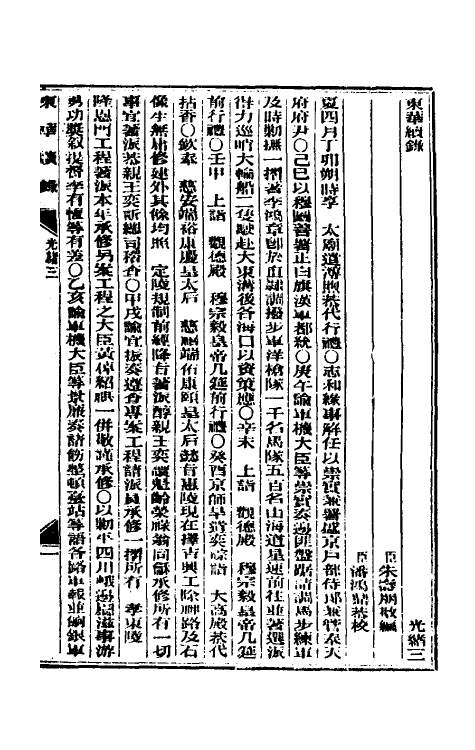 東華續錄
光緒三
臣朱壽朋敬編
臣潘鴻鼎恭校
夏四月丁卯朔時享　太廟遣溥煦恭代行禮○志和緣事解任以崇實兼署盛京戶部侍郎兼管奉天
府府尹○己巳以穆圖善署正白旗漢軍都統○庚午諭軍機大臣等崇實奏邊匪盤踞請調馬步練軍
及時勦撫一摺著李鴻章卽於直隸調撥步軍洋槍隊一千名馬隊五百名由海道星速前往並著選派
得力巡哨大輪船二隻駛赴大東溝後各海口以資策應○辛未　上詣　觀德殿　穆宗毅皇帝几筵
前行禮○壬申　上詣　觀德殿　穆宗毅皇帝几筵前行禮○癸酉京師旱遣奕綜詣　大高殿恭代
拈香○欽奉　慈安端裕康慶皇太后　慈禧端佑康頤皇太后懿旨惠陵現在擇吉興工除神路及石
像生無庸修建外其餘均照　定陵規制前經降旨著派醇親王奕譞魁齡榮祿翁同龢承修所有一切
事宜著派恭親王奕訢總司稽查○甲戌諭宜振奏遵查專案工程請派員承修一摺所有　孝東陵
隆恩門工程著派本年承修另案工程之大臣黃倬紹祺一併敬謹承修○以勦平四川峨邊
勇功獎敘提督李有恆等有差○乙亥諭軍機大臣等景廉奏請飭整頓臺站等語各路軍報並餉銀軍
東華續錄
光緒三
一